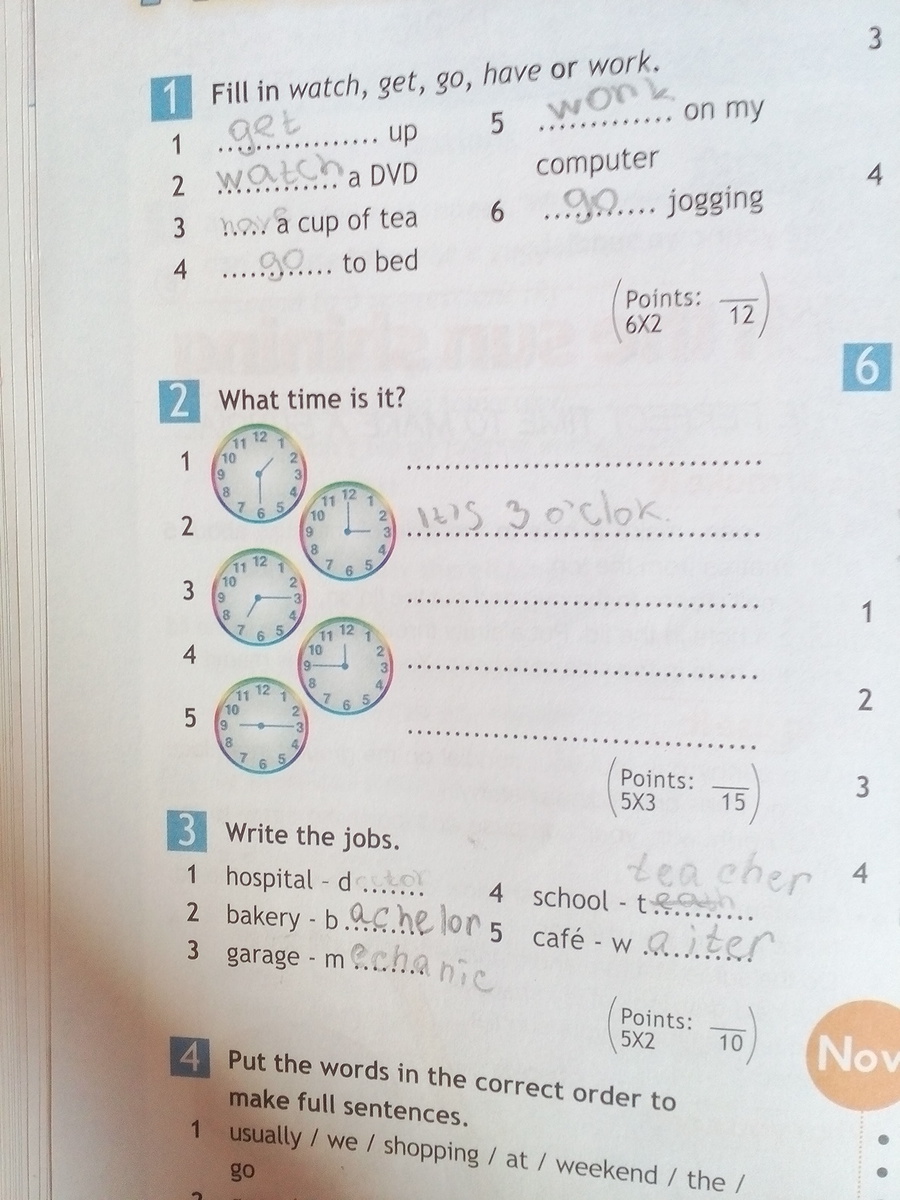 1 Fill in watch, get, go, have or work.
1 get up
2 watch a DVD
3 have a cup of tea
4 go to bed
5 work on my
computer
6 go jogging
(Points: __
6X2 12)
2 What time is it?
1
2 It's 3 o'clok.
3
4
5
(Points: __
5X3 15)
3 Write the jobs.
1 hospital - doctor
2 bakery - bachelor
3 garage - mechanic
teacher
4 school - t
5 café - waiter
(Points: __
5X2 10)
4 Put the words in the correct order to
make full sentences.
1 usually / we / shopping / at / weekend / the /
go
2
3
4
6
1
2
3
4
Nov